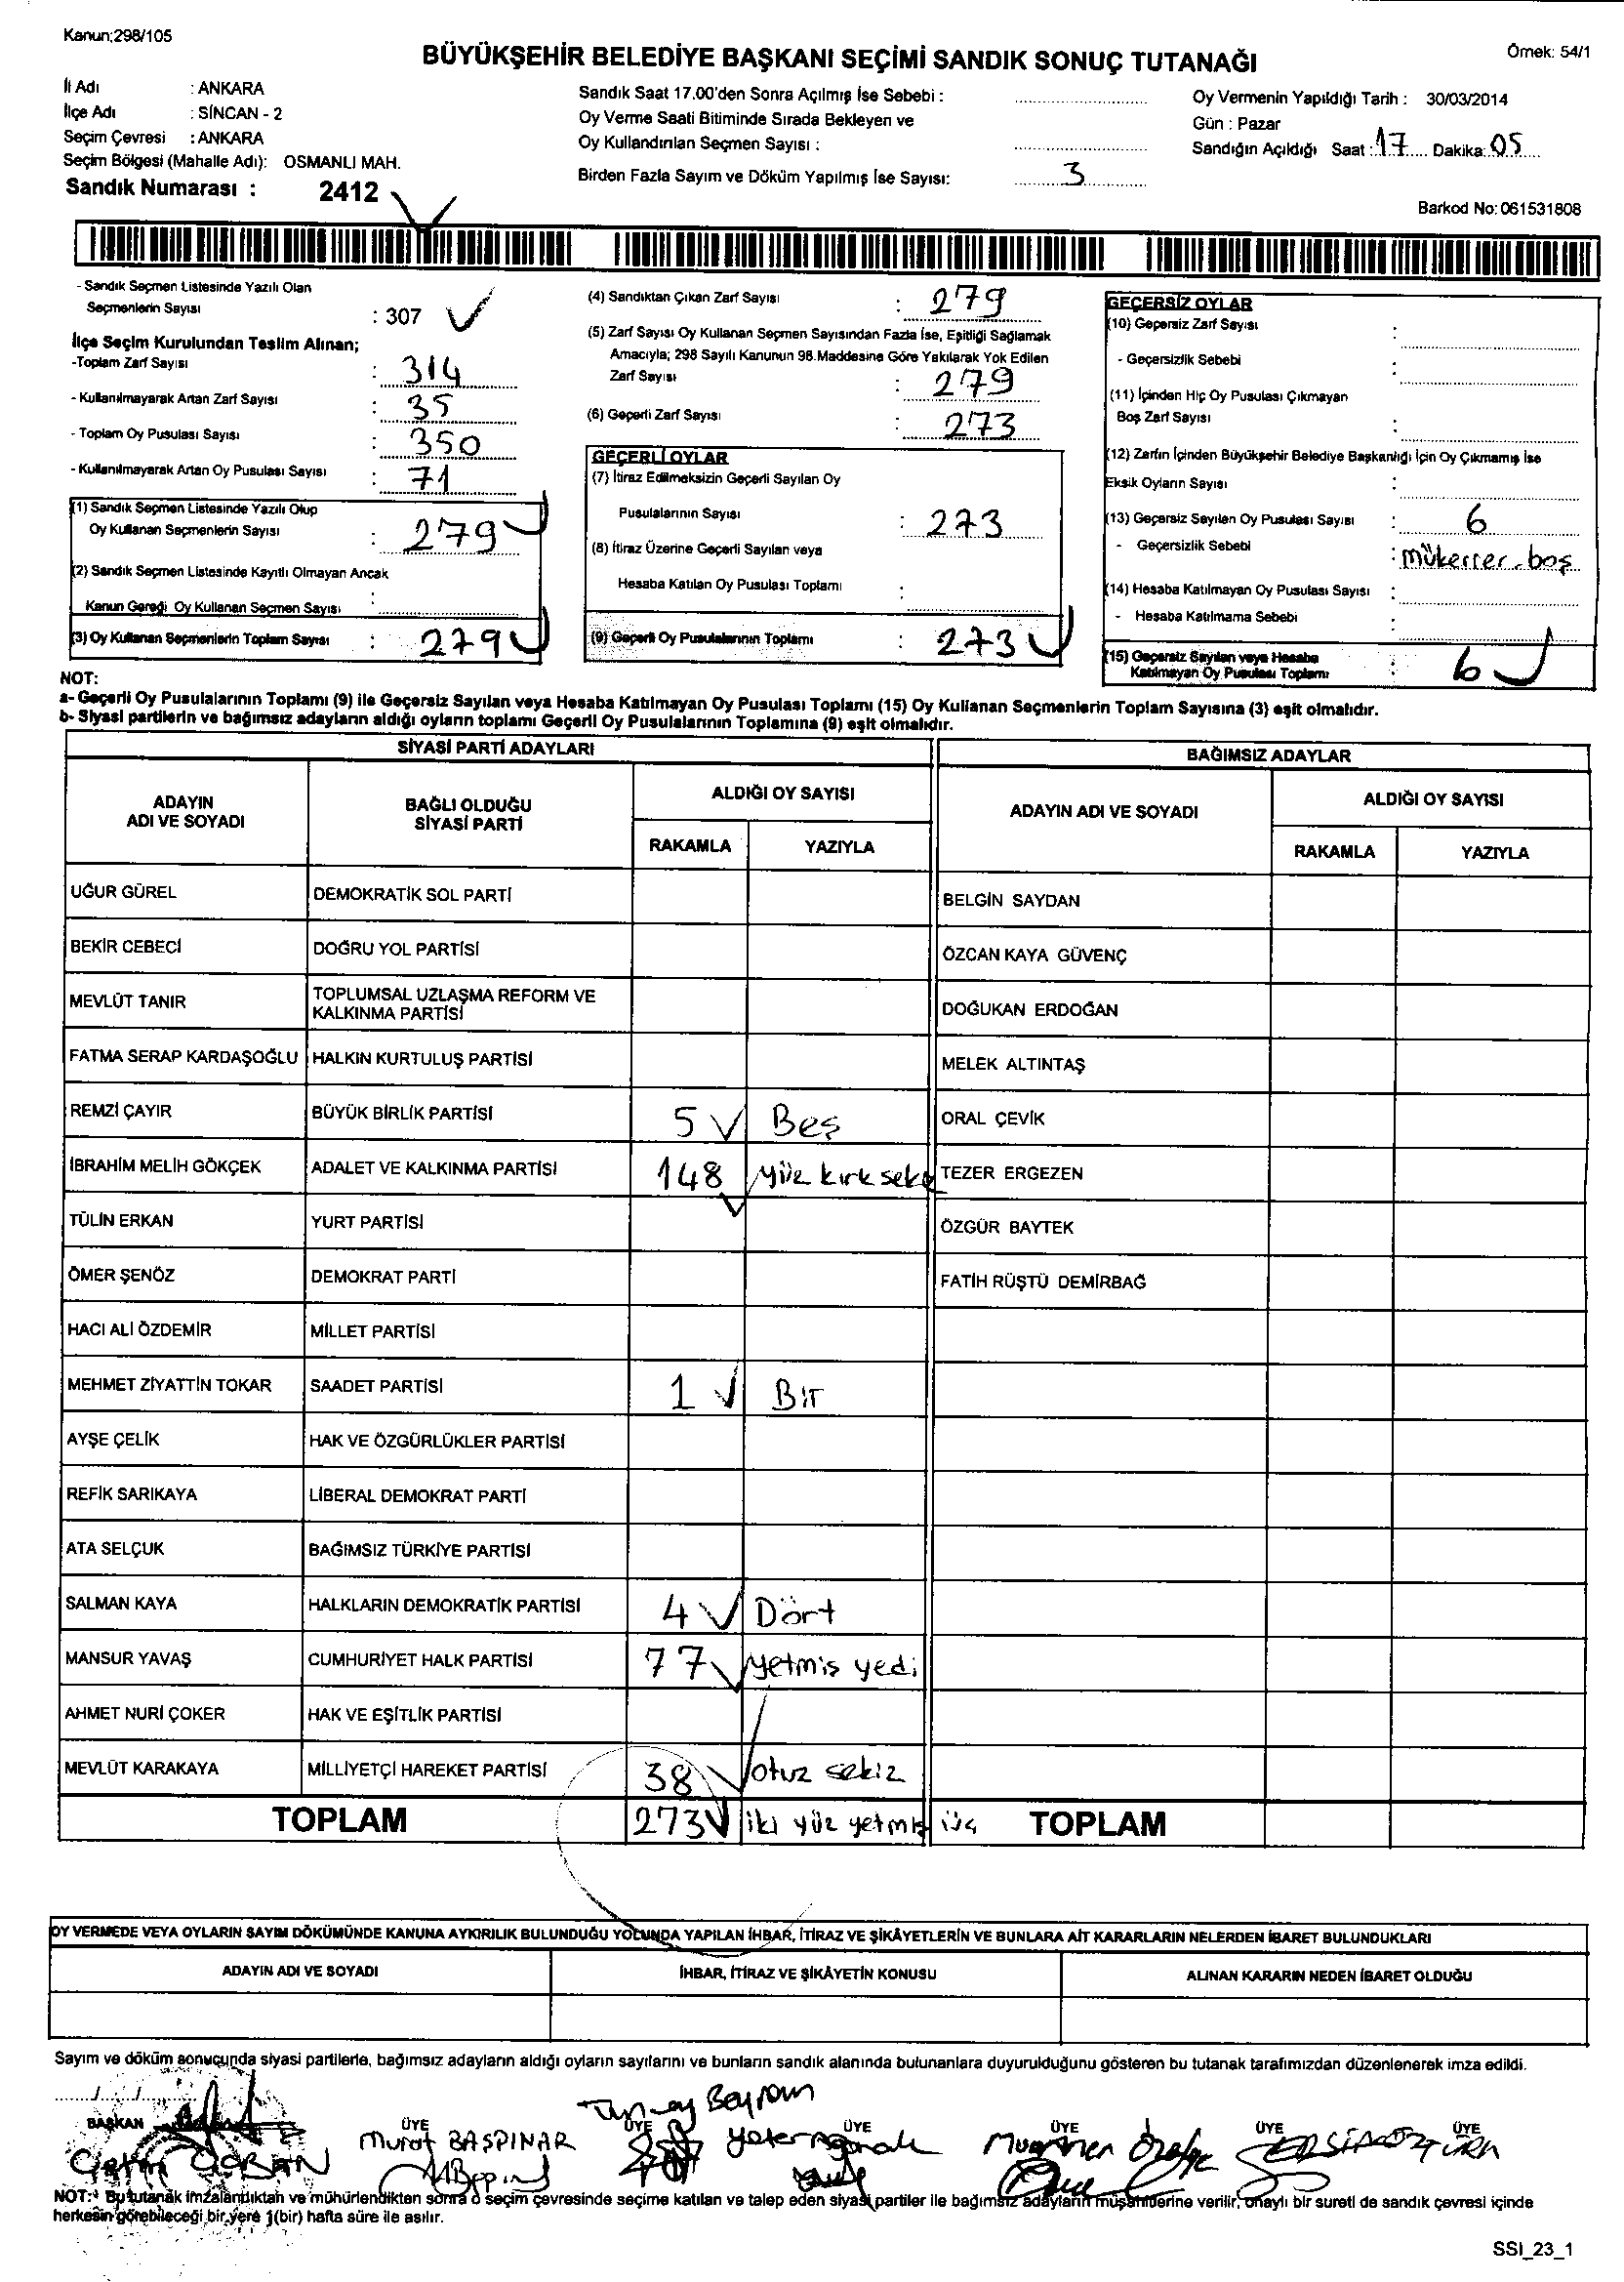 Kanun;298/105
Örnek: 54/1
BÜYÜKŞEHİR BELEDİYE BAŞKANI SEÇİMİ SANDIK SONUÇ TUTANAĞI
İl Adı : ANKARA
İlçe Adı : SİNCAN - 2
Seçim Çevresi : ANKARA
Seçim Bölgesi (Mahalle Adı): OSMANLI MAH.
Sandık Numarası : 2412
Sandık Saat 17.00'den Sonra Açılmış İse Sebebi :
Oy Verme Saati Bitiminde Sırada Bekleyen ve
Oy Kullandırılan Seçmen Sayısı :
Birden Fazla Sayım ve Döküm Yapılmış İse Sayısı: 3
Oy Vermenin Yapıldığı Tarih : 30/03/2014
Gün : Pazar
Sandığın Açıldığı Saat : 17 Dakika: 05
Barkod No: 061531808
- Sandık Seçmen Listesinde Yazılı Olan
Seçmenlerin Sayısı : 307
İlçe Seçim Kurulundan Teslim Alınan;
-Toplam Zarf Sayısı : 314
- Kullanılmayarak Artan Zarf Sayısı : 35
- Toplam Oy Pusulası Sayısı : 350
- Kullanılmayarak Artan Oy Pusulası Sayısı : 71
(1) Sandık Seçmen Listesinde Yazılı Olup
Oy Kullanan Seçmenlerin Sayısı : 279
(2) Sandık Seçmen Listesinde Kayıtlı Olmayan Ancak
Kanun Gereği Oy Kullanan Seçmen Sayısı :
(3) Oy Kullanan Seçmenlerin Toplam Sayısı : 279
(4) Sandıktan Çıkan Zarf Sayısı : 279
(5) Zarf Sayısı Oy Kullanan Seçmen Sayısından Fazla İse, Eşitliği Sağlamak
Amacıyla; 298 Sayılı Kanunun 98.Maddesine Göre Yakılarak Yok Edilen
Zarf Sayısı : 279
(6) Geçerli Zarf Sayısı : 273
GEÇERLİ OYLAR
(7) İtiraz Edilmeksizin Geçerli Sayılan Oy
Pusulalarının Sayısı : 273
(8) İtiraz Üzerine Geçerli Sayılan veya
Hesaba Katılan Oy Pusulası Toplamı :
(9) Geçerli Oy Pusulalarının Toplamı : 273
GEÇERSİZ OYLAR
(10) Geçersiz Zarf Sayısı :
- Geçersizlik Sebebi :
(11) İçinden Hiç Oy Pusulası Çıkmayan
Boş Zarf Sayısı :
(12) Zarfın İçinden Büyükşehir Belediye Başkanlığı İçin Oy Çıkmamış İse
Eksik Oyların Sayısı :
(13) Geçersiz Sayılan Oy Pusulası Sayısı : 6
- Geçersizlik Sebebi : mükerrer - boş
(14) Hesaba Katılmayan Oy Pusulası Sayısı :
- Hesaba Katılmama Sebebi :
(15) Geçersiz Sayılan veya Hesaba
Katılmayan Oy Pusulası Toplamı : 6
NOT:
a- Geçerli Oy Pusulalarının Toplamı (9) ile Geçersiz Sayılan veya Hesaba Katılmayan Oy Pusulası Toplamı (15) Oy Kullanan Seçmenlerin Toplam Sayısına (3) eşit olmalıdır.
b- Siyasi partilerin ve bağımsız adayların aldığı oyların toplamı Geçerli Oy Pusulalarının Toplamına (9) eşit olmalıdır.
SİYASİ PARTİ ADAYLARI
BAĞIMSIZ ADAYLAR
ADAYIN ADI VE SOYADI
BAĞLI OLDUĞU SİYASİ PARTİ
ALDIĞI OY SAYISI
RAKAMLA YAZIYLA
ADAYIN ADI VE SOYADI
ALDIĞI OY SAYISI
RAKAMLA YAZIYLA
UĞUR GÜREL DEMOKRATİK SOL PARTİ BELGİN SAYDAN
BEKİR CEBECİ DOĞRU YOL PARTİSİ ÖZCAN KAYA GÜVENÇ
MEVLÜT TANIR TOPLUMSAL UZLAŞMA REFORM VE KALKINMA PARTİSİ DOĞUKAN ERDOĞAN
FATMA SERAP KARDAŞOĞLU HALKIN KURTULUŞ PARTİSİ MELEK ALTINTAŞ
REMZİ ÇAYIR BÜYÜK BİRLİK PARTİSİ 5 Beş ORAL ÇEVİK
İBRAHİM MELİH GÖKÇEK ADALET VE KALKINMA PARTİSİ 148 yüz kırk sekz TEZER ERGEZEN
TÜLİN ERKAN YURT PARTİSİ ÖZGÜR BAYTEK
ÖMER ŞENÖZ DEMOKRAT PARTİ FATİH RÜŞTÜ DEMİRBAĞ
HACI ALİ ÖZDEMİR MİLLET PARTİSİ
MEHMET ZİYATTİN TOKAR SAADET PARTİSİ 1 Bir
AYŞE ÇELİK HAK VE ÖZGÜRLÜKLER PARTİSİ
REFİK SARIKAYA LİBERAL DEMOKRAT PARTİ
ATA SELÇUK BAĞIMSIZ TÜRKİYE PARTİSİ
SALMAN KAYA HALKLARIN DEMOKRATİK PARTİSİ 4 Dört
MANSUR YAVAŞ CUMHURİYET HALK PARTİSİ 77 yetmis yedi
AHMET NURİ ÇOKER HAK VE EŞİTLİK PARTİSİ
MEVLÜT KARAKAYA MİLLİYETÇİ HAREKET PARTİSİ 38 otuz sekiz
TOPLAM 273 iki yüz yetmiş üç TOPLAM
OY VERMEDE VEYA OYLARIN SAYIM DÖKÜMÜNDE KANUNA AYKIRILIK BULUNDUĞU YOLUNDA YAPILAN İHBAR, İTİRAZ VE ŞİKÂYETLERİN VE BUNLARA AİT KARARLARIN NELERDEN İBARET BULUNDUKLARI
ADAYIN ADI VE SOYADI İHBAR, İTİRAZ VE ŞİKÂYETİN KONUSU ALINAN KARARIN NEDEN İBARET OLDUĞU
Sayım ve döküm sonucunda siyasi partilerle, bağımsız adayların aldığı oyların sayılarını ve bunların sandık alanında bulunanlara duyurulduğunu gösteren bu tutanak tarafımızdan düzenlenerek imza edildi.
BAŞKAN ÜYE ÜYE ÜYE ÜYE ÜYE ÜYE
Murat BAŞPINAR
Bayram
NOT: Bu tutanak imzalandıktan ve mühürlendikten sonra o seçim çevresinde seçime katılan ve talep eden siyasi partiler ile bağımsız adayların müşahitlerine verilir, onaylı bir sureti de sandık çevresi içinde
herkesin görebileceği bir yere 1(bir) hafta süre ile asılır.
SSI_23_1